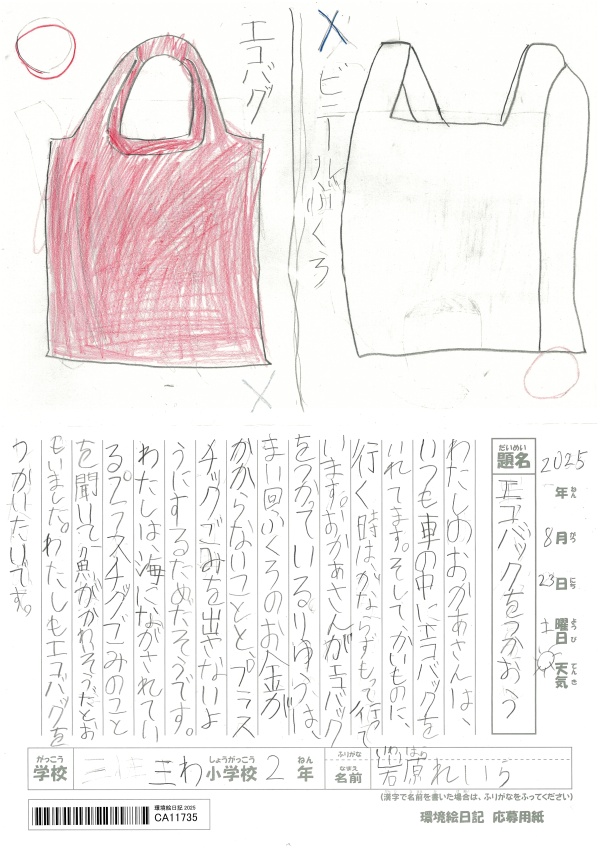 エコバグ
ビニールぶくろ
だいめい
題名
エコバックをつかおう
2025年
ねん
8月
がつ
23日
にち
土曜日
ようび
天気
てんき
わたしのおかあさんは、
いつも車の中にエコバックを
いれてます。そしてかいものに、
行く時はかならずもって行って
います。おかあさんがエコバック
をつかっているりゆうは、
まい回ふくろのお金が
かからないことと、プラス
チックごみを出さないよ
うにするためだそうです。
わたしは、海にながされてい
るプラスチックごみのこと
を聞いて魚がかわいそうだとお
もいました。わたしもエコバックを
つかいたいです。
がっこう
学校
三わ
しょうがっこう
小学校
2
ねん
年
ふりがな
いわ はら
なまえ
名前
岩原れいら
(漢字で名前を書いた場合は、ふりがなをふってください)
環境絵日記 2025
CA11735
環境絵日記 応募用紙